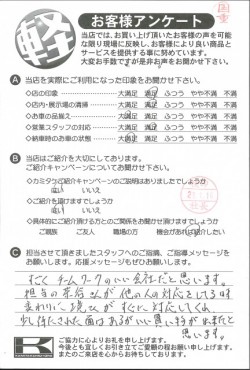 軽
お客様アンケート
当店では、お買い上げ頂いたお客様の声を可能
な限り現場に反映し、お客様により良い商品と
サービスを提供する事に努めています。
大変お手数ですが是非お声をお聞かせ下さい。
A 当店を実際にご利用になった印象をお聞かせ下さい。
◇店の印象 大満足 満足 ふつう やや不満 不満
◇店内・展示場の清掃 大満足 満足 ふつう やや不満 不満
◇お車の品揃え 大満足 満足 ふつう やや不満 不満
◇営業スタッフの対応 大満足 満足 ふつう やや不満 不満
◇納車時のお車の状態 大満足 満足 ふつう やや不満 不満
B 当店はご紹介を大切にしております。
ご紹介キャンペーンについてお聞かせ下さい。
はい いいえ
◇ご紹介を頂けますでしょうか
はい いいえ
◇具体的にご紹介頂ける方とのご関係をお聞かせ下さい
ご親族 ご友人 職場の方 機会があれば紹介したい
C 担当させて頂きましたスタッフへのご指摘、ご指導メッセージを
お願いします。応援メッセージもぜひお願いします。
すごくチームワークのいい会社だと思います。
担当の
他の人の対応をしてる時
すぐに対応してくれ
少し待たされた面はあるがいい買い物が出来たと
思います。
K
ご協力に心よりお礼を申し上げます。
今後とも宜しくお引き立てご愛顧の程お願い申し上げます。
またのご来店を心からお待ちしております。